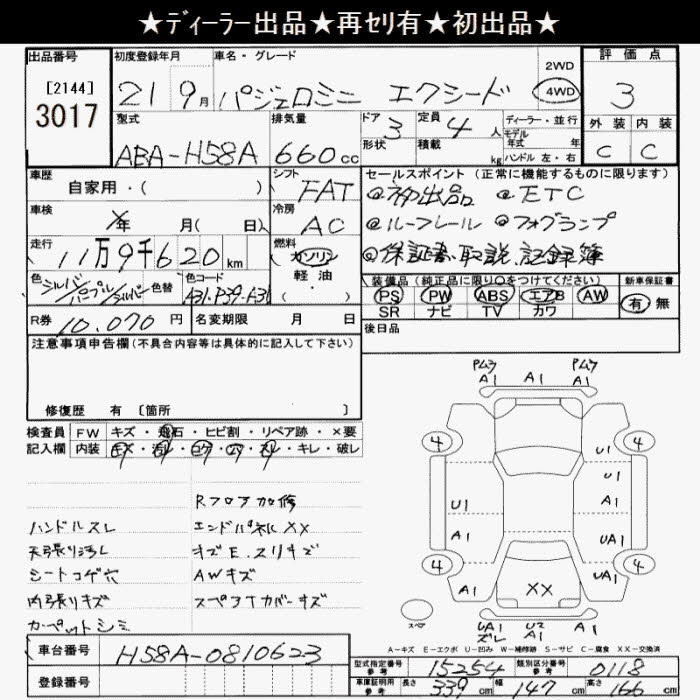 ★ディーラー出品★再セリ有★初出品★
出品番号 初度登録年月 車名・グレード 2WD 評価点
[2144] 21 9月 パジェロミニ エクシード 4WD 3
3017
型式 排気量 ドア 定員 ディーラー・並行 外装 内装
ABA-H58A 660cc 3 4人 モデル年式 年 C C
形状 積載 kg ハンドル 左・右
車歴 シフト セールスポイント(正常に機能するものに限ります)
自家用・( ) FAT @初出品 @ETC
車検 年 月( 日) 冷房 AC @ルーフレール @フォグランプ
走行 11万9千620km 燃料 ガソリン @保証書、取説、記録簿
軽油・( )
色 シルバー/パープル/シルバー 色替 色コード A31-P39-A31
装備品(純正品に限り○をつけてください) 新車保証書
PS PW ABS エアB AW 有 無
SR ナビ TV カワ
R券 10,070円 名変期限 月 日 後日品
注意事項申告欄(不具合内容等は具体的に記入して下さい)
修復歴 有 [箇所 ]
検査員 FW キズ・飛石・ヒビ割・リペア跡・×要
記入欄 内装 キズ・汚レ・コゲ・穴・スレ・キレ・破レ
Rフロア加修
ハンドルスレ エンドパネルXX
天張り汚レ キズE、スリキズ
シートコゲ穴 AWキズ
内張りキズ スペアTカバーキズ
カーペットシミ
A1 A1 A1
4 4
U1
U1 A1
A1 UA1
4 4
A1 XX UA1
スペア UA1 U2 A1
ズレ A1
A-キズ E-エクボ U-凹み W-補修跡 S-サビ C-腐食 XX-交換済
車台番号 H58A-0810623
登録番号
型式指定番号 参考 15254 類別区分番号 参考 0118
車庫証明用 参考 長さ 339cm 幅 147cm 高さ 166cm